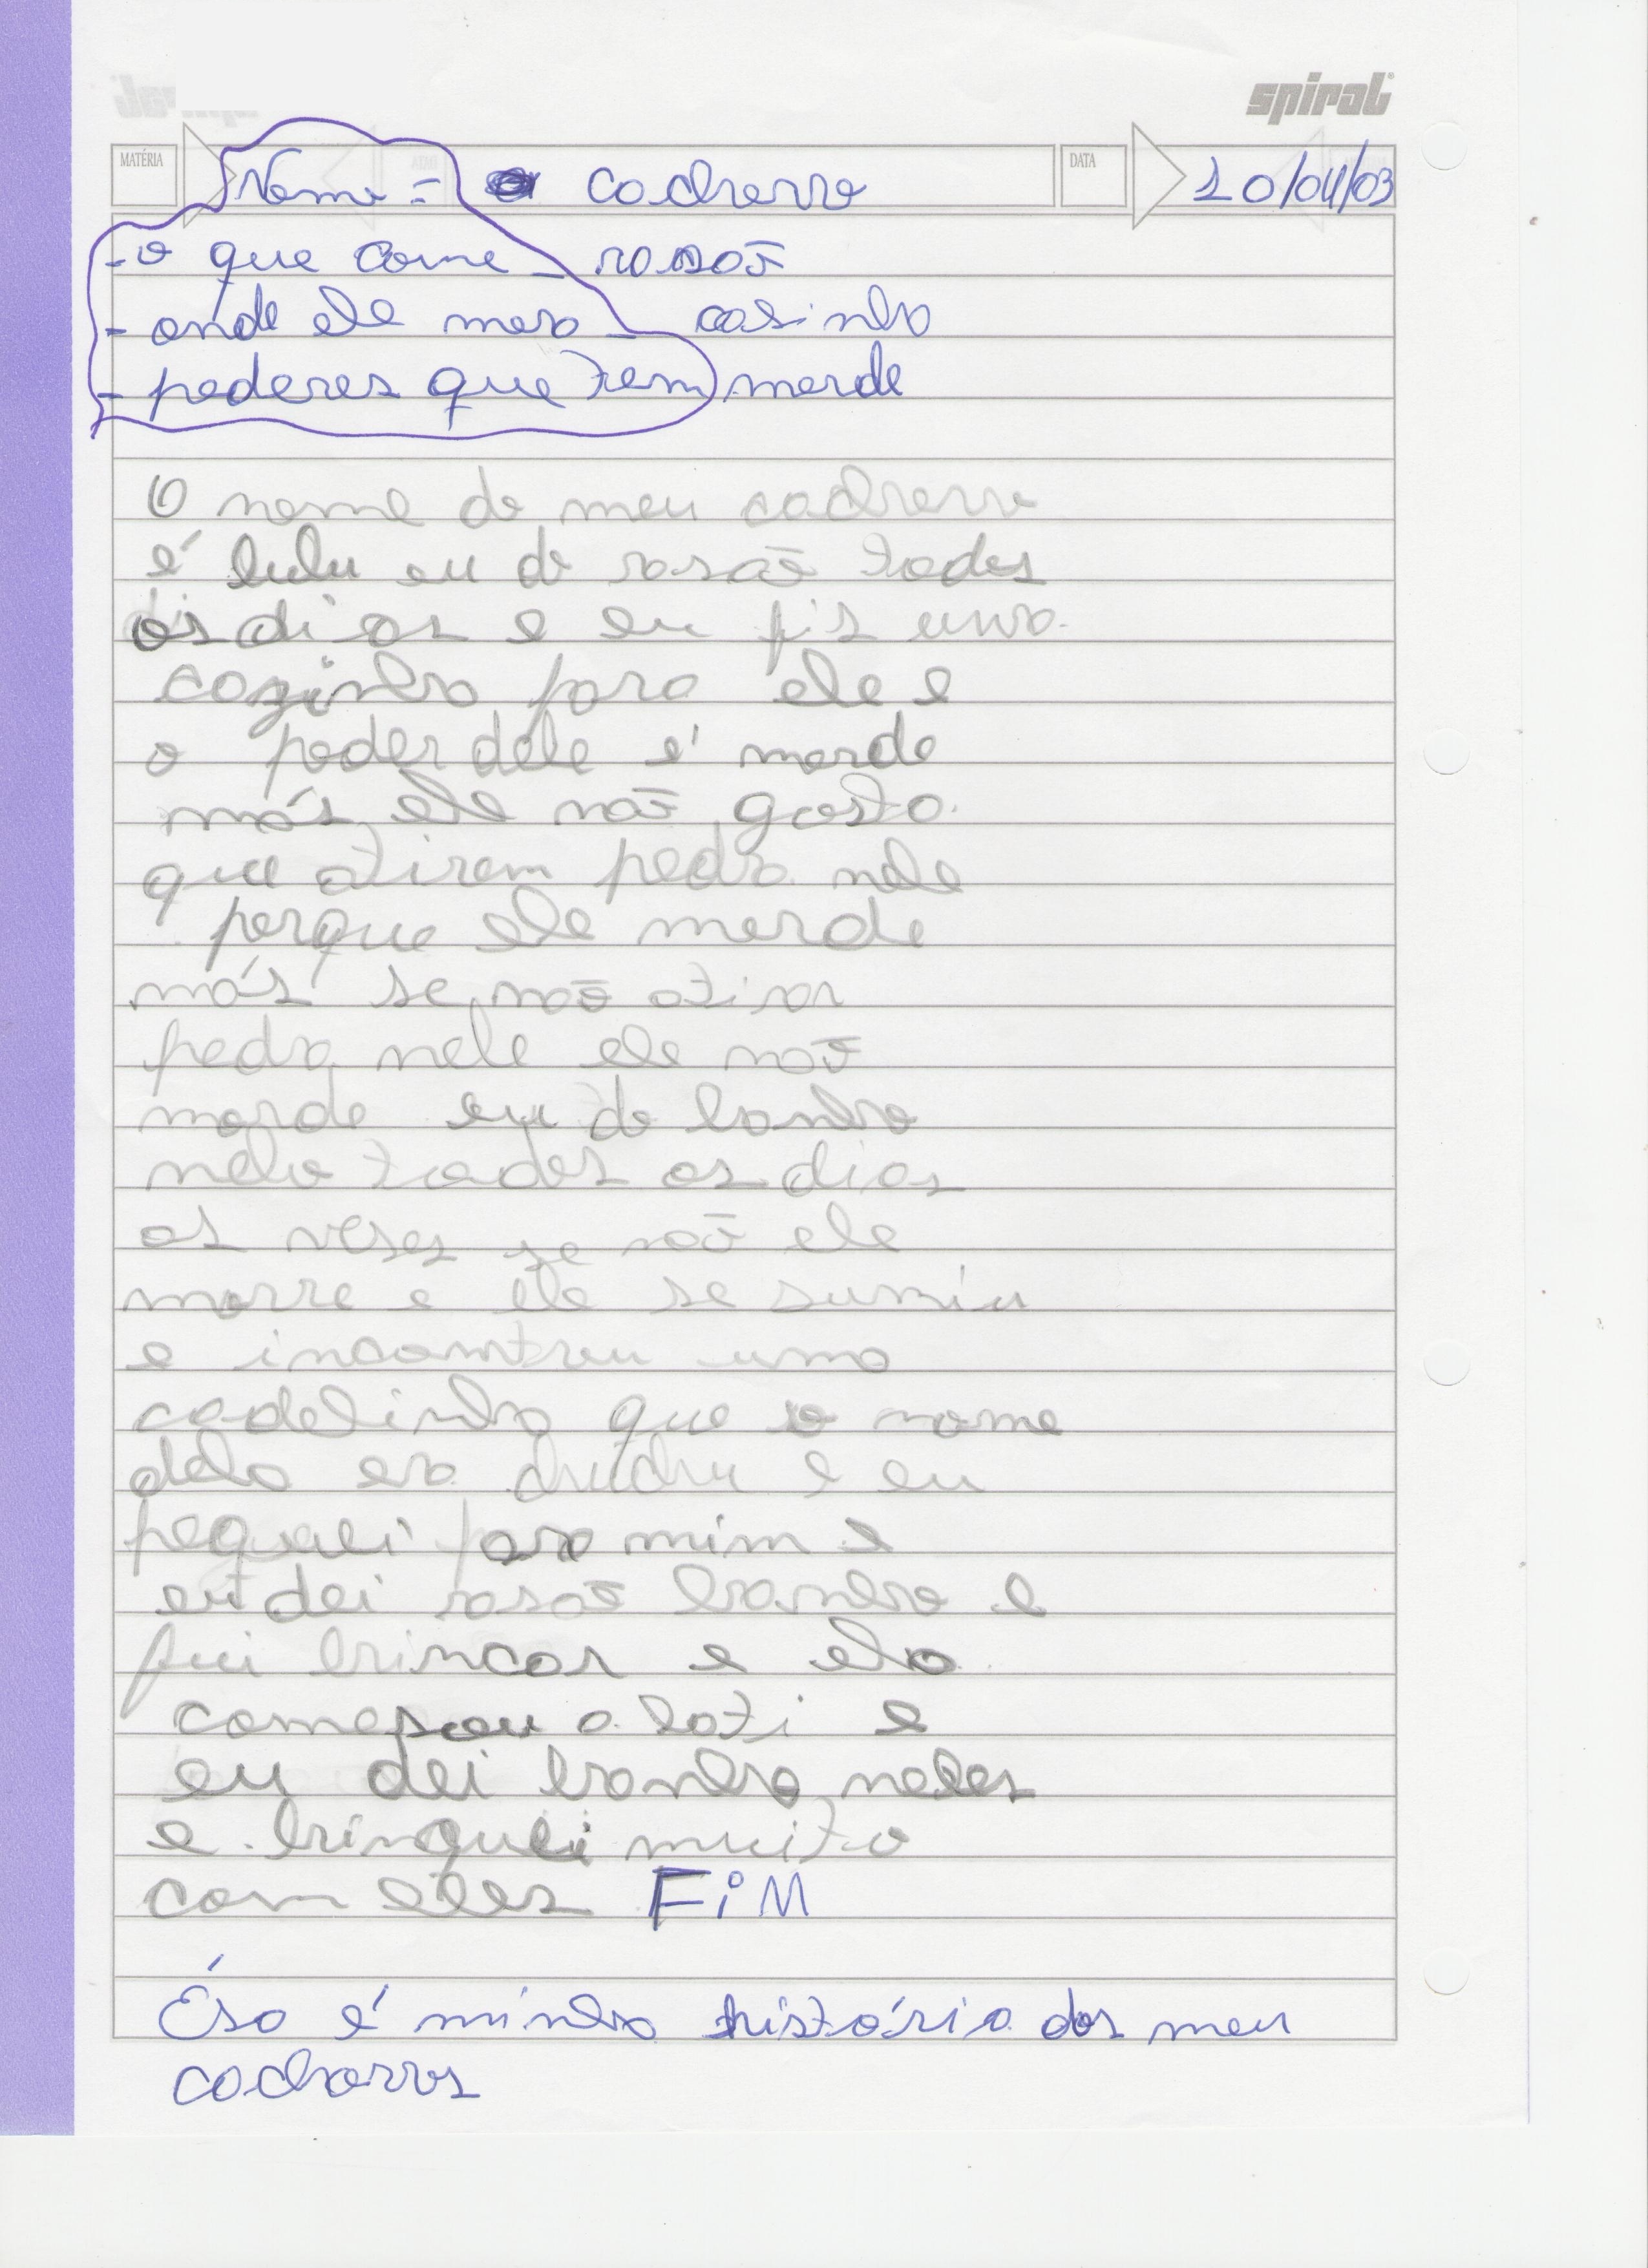 spiral
MATÉRIA Nome = cachorro DATA 10/04/03
- o que come - rasão
- onde ele mora - casinha
- poderes que tem morde
O nome do meu cachorro
é lulu eu do rasão todos
os dias e eu fis uma
cazinha para ele e
o poder dele é morde
más ele não gosta
que atirem pedra nele
porque ele morde
más se não atirar
pedra nele ele não
morde eu do banho
nelo todos os dias
as veses se não ele
morre e ele se sumiu
e incomtrou uma
cadelinha que o nome
dela era chuchu e eu
peguei para mim e
eu dei rasão banho e
fui brincar e ela
comesou a lati e
eu dei banho neles
e brinquei muito
com eles FiM
Ésa é minha história dos meu
cachorros